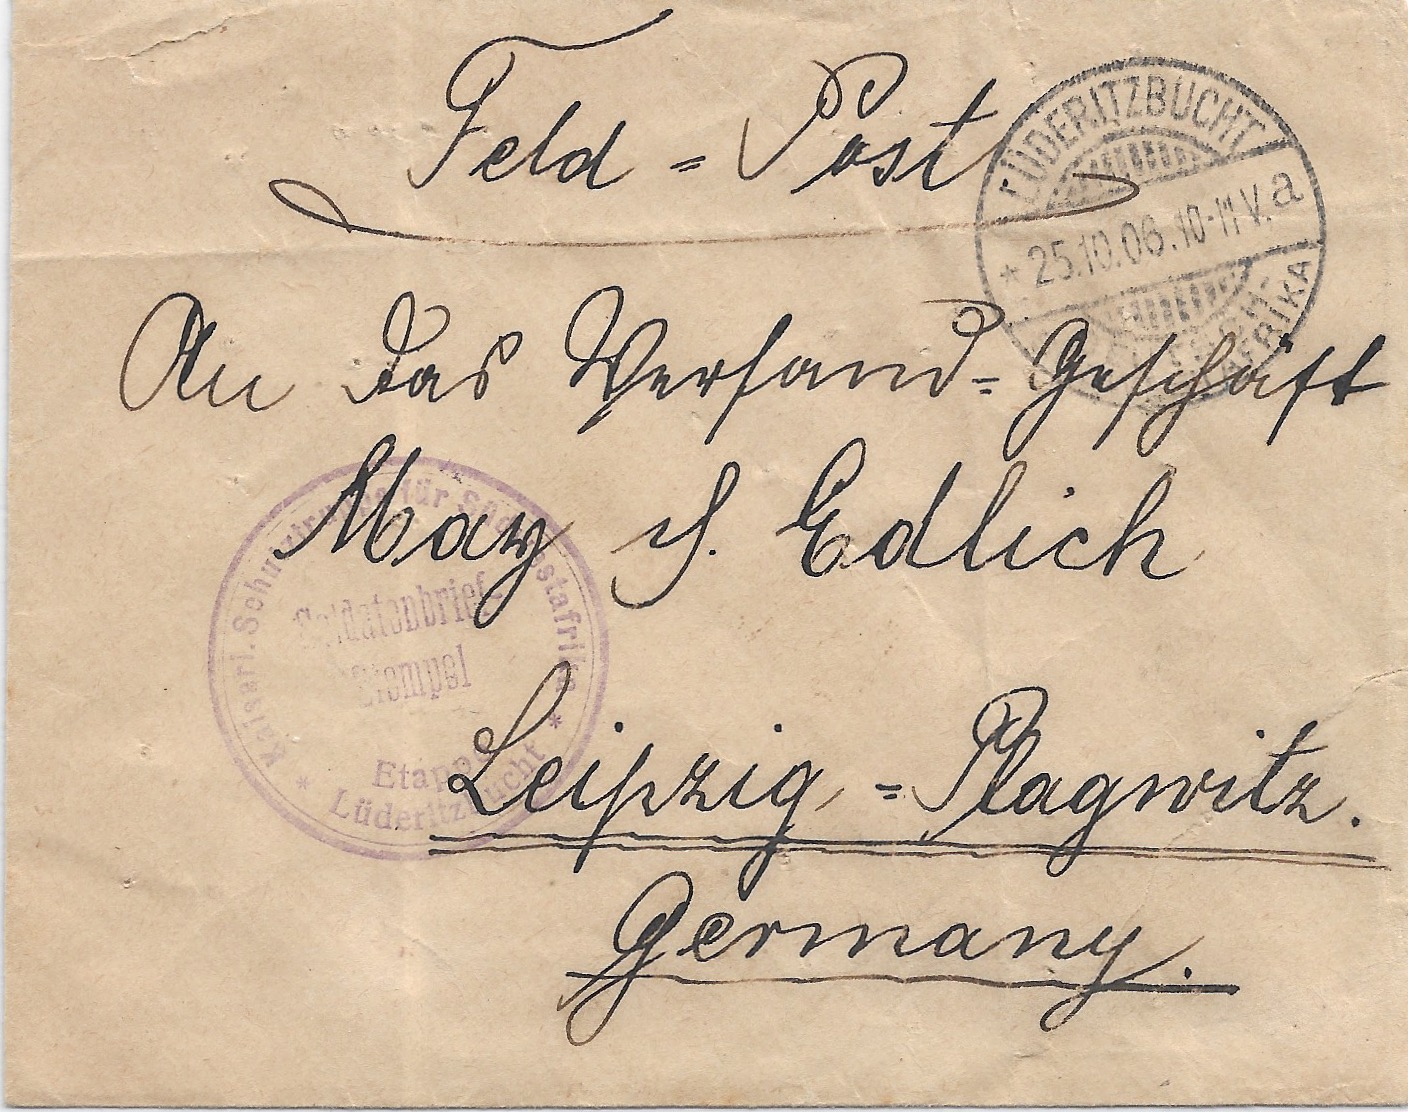 Feld=Post
LÜDERITZBUCHT
* 25.10.06.10-11V. a
AFRIKA
An das Versand=Geschäft
May u. Edlich
Kaiserl. Schutztruppe für Südwestafrika
Soldatenbrief
Stempel
Etappe
* Lüderitzbucht *
Leipzig=Plagwitz.
Germany.